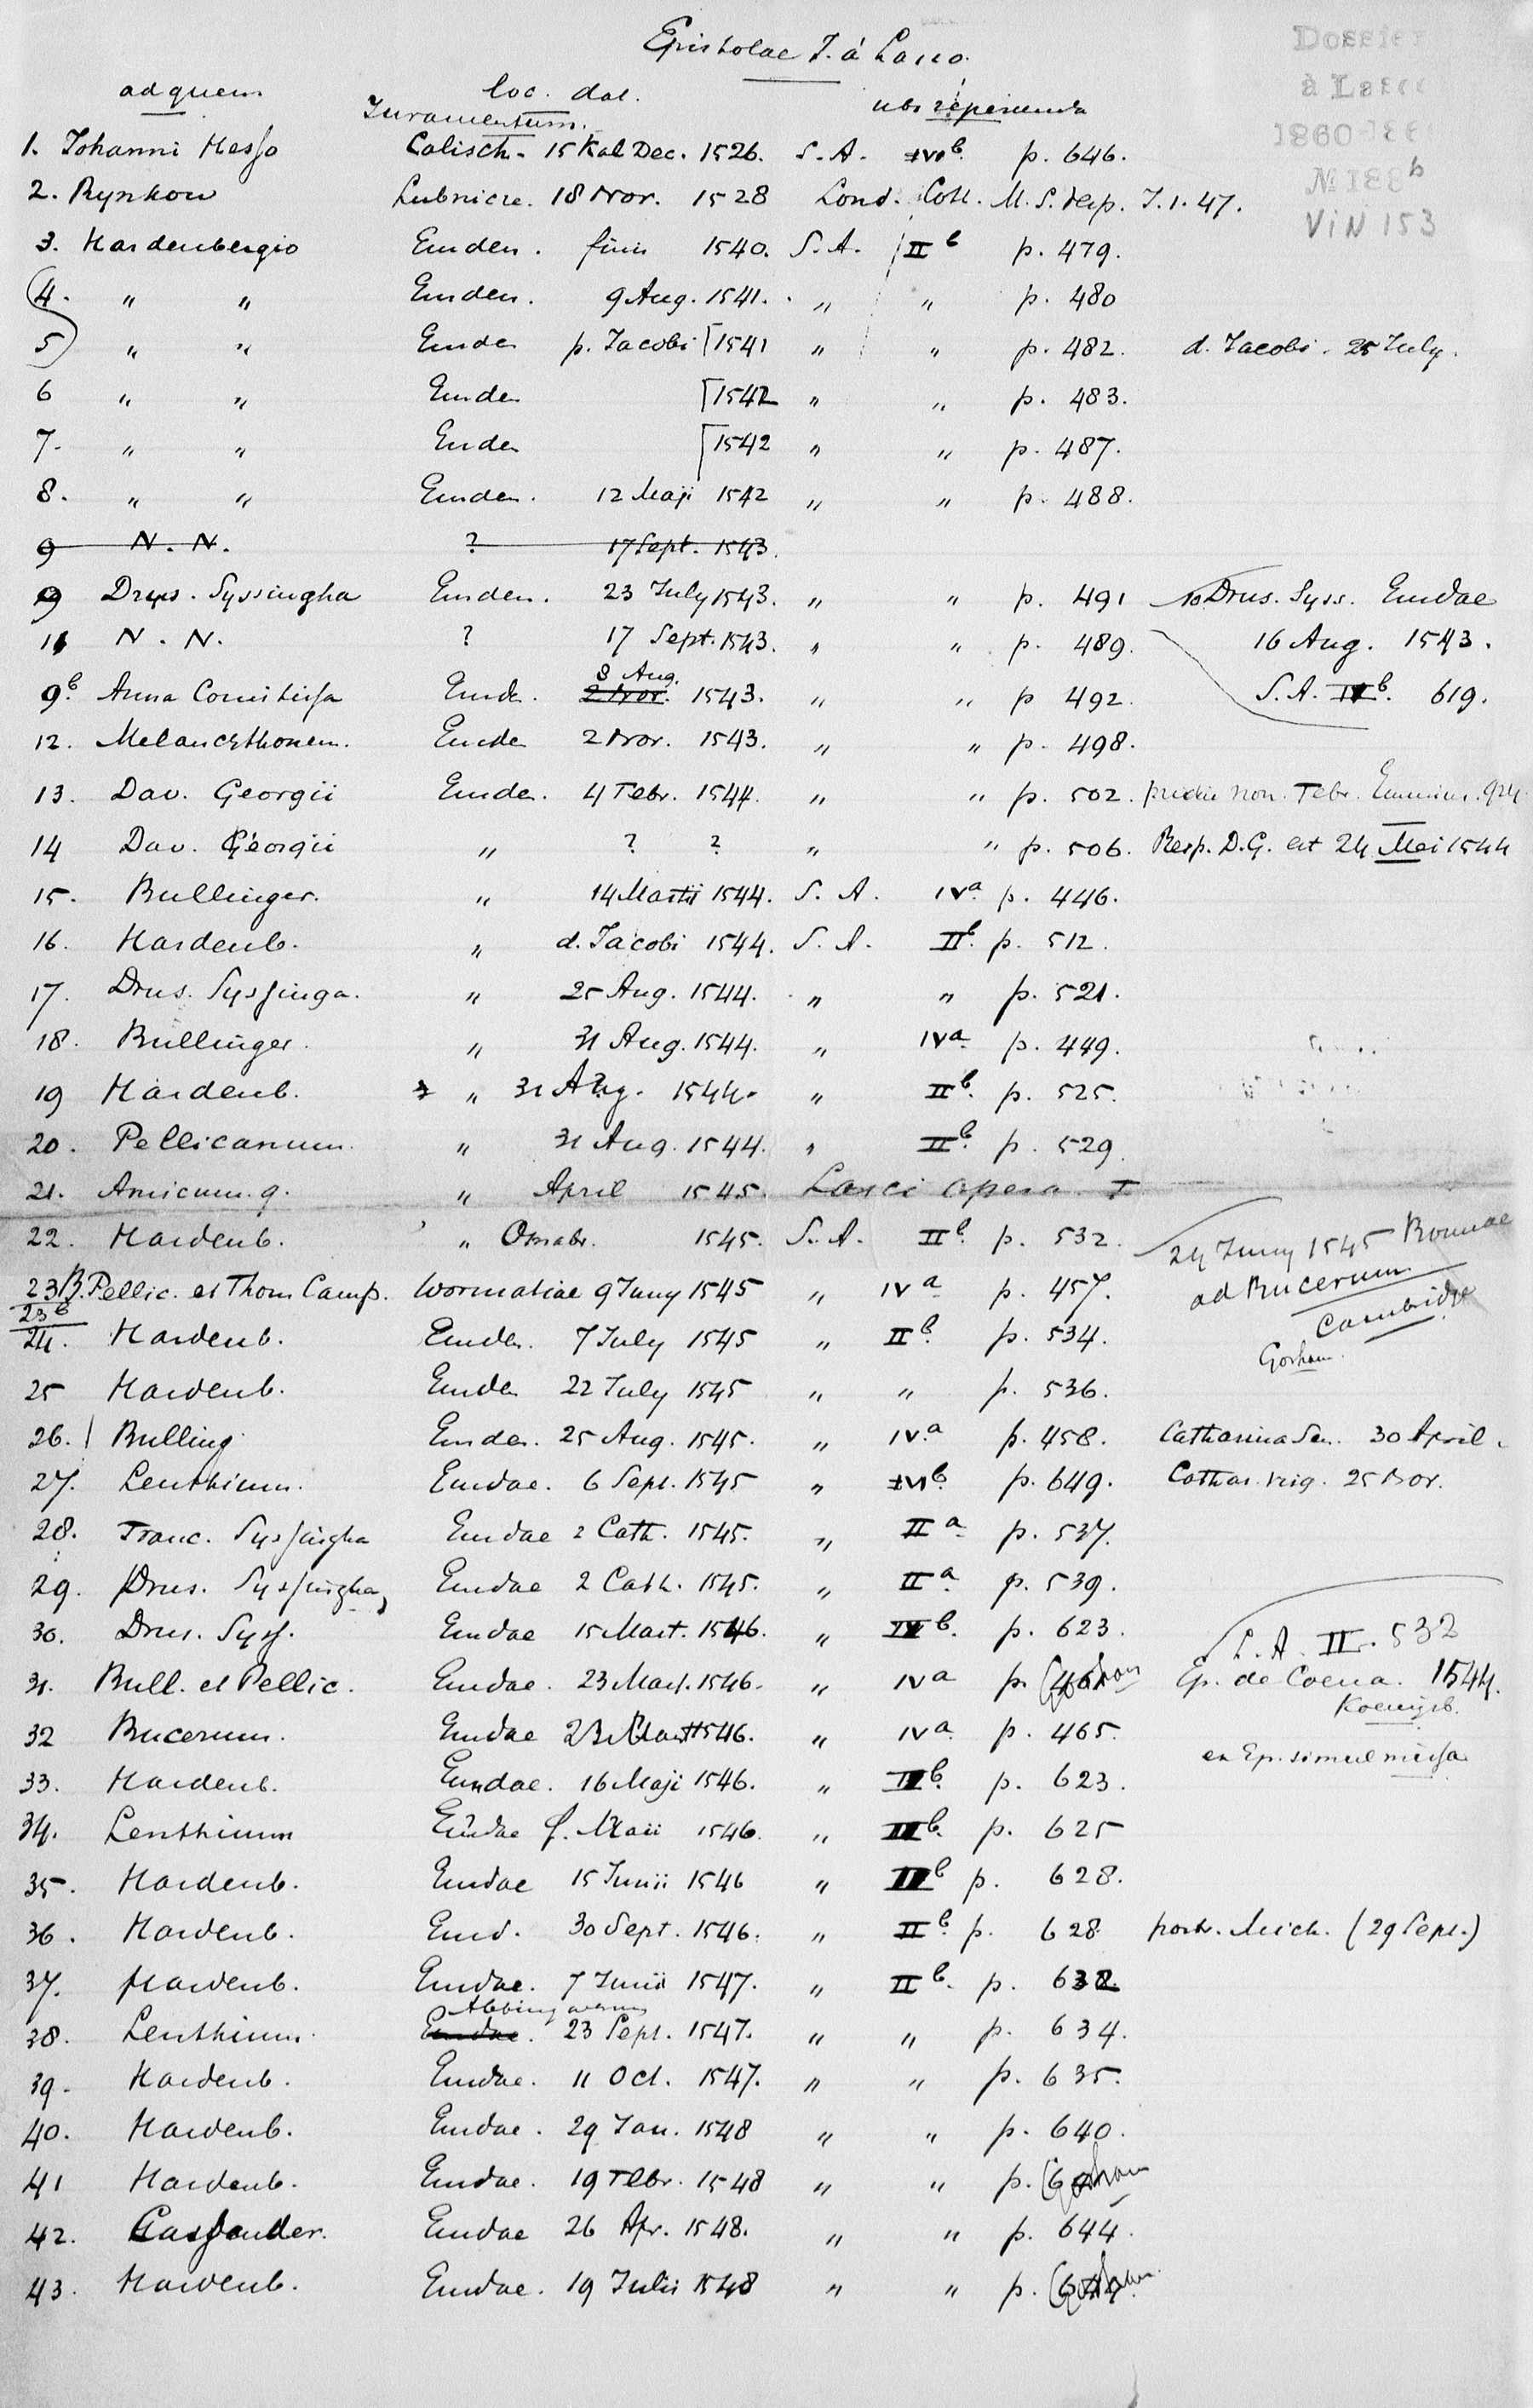 Epistolae J. à Lasco.
Dossier
à Lasco
1860-186
№ 188 b
VIN 153
ad quem loc. dat. ubi reperienda
Juramentum.
1. Johanni Hesso Calisch. 15 Kal Dec. 1526. S. A. VI b. p. 646.
2. Rynkow Lubnicze. 18 Nov. 1528 Lond. Cott. M. S. Vesp. J. 1. 47.
3. Hardenbergio Emden. finis 1540. S. A. II b p. 479.
4. " " Emden. 9 Aug. 1541. " " p. 480
5 " " Emden p. Jacobi [1541 " " p. 482. d. Jacobi. 25 July.
6 " " Emden [1542 " " p. 483.
7. " " Emden [1542 " " p. 487.
8. " " Emden. 12 Maji 1542 " " p. 488.
9 N. N. ? 17 Sept. 1543.
9 Drus. Syssingha Emden. 23 July 1543. " " p. 491 10. Drus. Syss. Emdae
11 N. N. ? 17 Sept. 1543. " " p. 489. 16 Aug. 1543.
9 b Anna Comitissa Emde. 2 Nov. 8 Aug. 1543. " " p 492. S. A. IV b. 619.
12. Melancthonem. Emden 2 Nov. 1543. " " p. 498.
13. Dav. Georgii Emden. 4 Febr. 1544. " " p. 502. pridie Non. Febr.
14 Dav. Georgii " ? ? " " p. 506. Resp. D. G. est 24 Mei 1544
15. Bullinger. " 14 Martii 1544. S. A. IV a p. 446.
16. Hardenb. " d. Jacobi 1544. S. A. II b. p. 512.
17. Drus. Syssinga. " 25 Aug. 1544. " " p. 521.
18. Bullinger. " 31 Aug. 1544. " IV a p. 449.
19 Hardenb. " 31 Aug. 1544. " II b. p. 525.
20. Pellicanum. " 31 Aug. 1544. " II b. p. 529.
21. Amicum q. " April 1545. Lasci opera. I
22. Hardenb. " Osnabr. 1545. S. A. II b. p. 532. 24 Juny 1545 Bonnae
23 B. Pellic. et Thom Camp. Wormatiae 9 Juny 1545 " IV a p. 457. ad Bucerum
23 b Cambridge
24. Hardenb. Emden. 7 July 1545 " II b. p. 534. Gorham.
25 Hardenb. Emden 22 July 1545 " " p. 536.
26. Bulling. Emden. 25 Aug. 1545. " IV a p. 458. Catharina Sen. 30 April.
27. Lenthium. Emdae. 6 Sept. 1545 " VI b p. 649. Cathar. virg. 25 Nov.
28. Franc. Syssingha Emdae 2 Cath. 1545. " II a p. 537.
29. Drus. Syssingha Emdae 2 Cath. 1545. " II a p. 539.
30. Drus. Syss. Emdae 15 Mart. 1546. " IV b. p. 623. S. A. II. 532
31. Bull. et Pellic. Emdae. 23 Mart. 1546. " IV a p. Gorham Ep. de Coena. 1544.
Koenigsb.
32 Bucerum. Emdae 23 Mart 1546. " IV a p. 465. en Ep. simul missa
33. Hardenb. Emdae. 16 Maji 1546. " II b. p. 623.
34. Lenthium Emdae f. Maii 1546. " II b. p. 625
35. Hardenb. Emdae 15 Junii 1546 " II b p. 628.
36. Hardenb. Emd. 30 Sept. 1546. " II b. p. 628. postr. Mich. (29 Sept.)
37. Hardenb. Emdae. 7 Junii 1547. " II b. p. 632
38. Lenthium. Emdae. Abbingweer 23 Sept. 1547. " " p. 634.
39. Hardenb. Emdae. 11 Oct. 1547. " " p. 635.
40. Hardenb. Emdae. 29 Jan. 1548 " " p. 640.
41 Hardenb. Emdae. 19 Febr. 1548 " " p. Gorham
42. Cassander. Emdae 26 Apr. 1548. " " p. 644.
43. Hardenb. Emdae. 19 Julii 1548 " " p. Gorham.